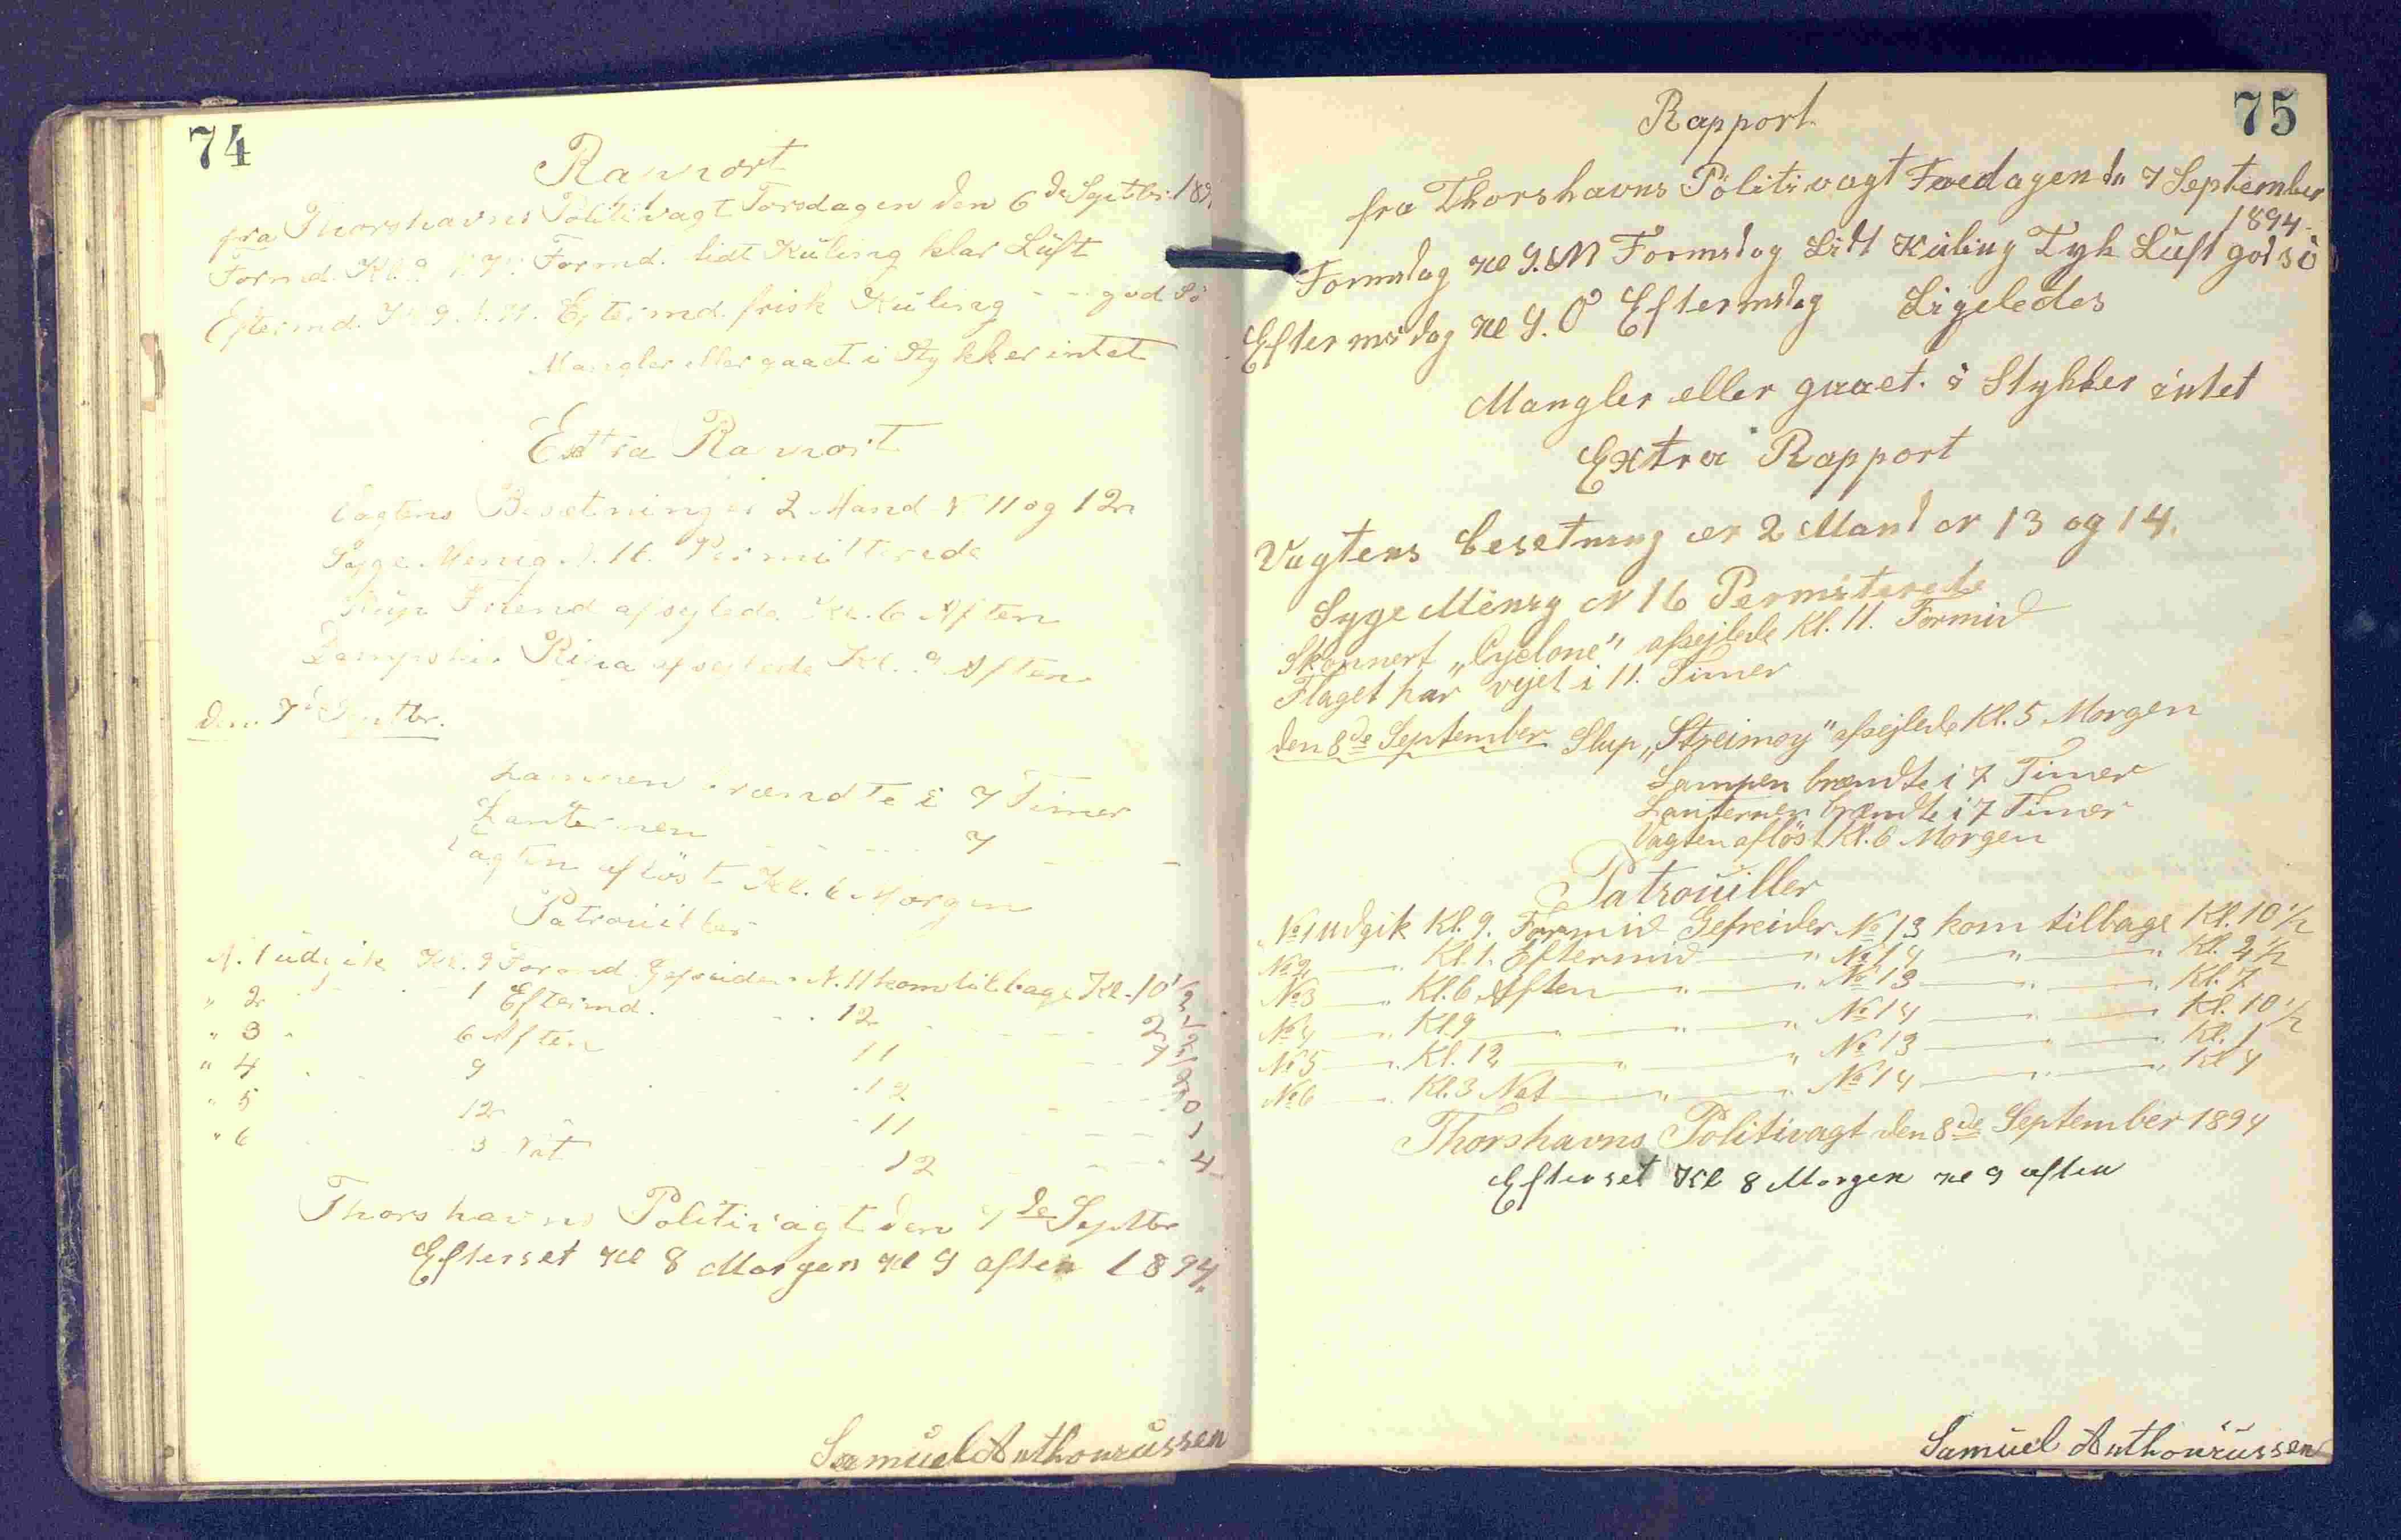 74
Rapport
fra Thorshavns Politivagt Torsdagen den 6de Septbr. 189
Formd. Kl. 9 Formd. lidt Kuling klar Luft
Eftermd. Kl. 9. Eftermd. frisk Kuling - - god Sö
Mangler eller gaaet i Stykker intet
Extra Rapport
Vagtens Besetning er 2 Mand N 11 og 12
Syge Menig N. 16. Permitterede
Friend afsejlede Kl. 6 Aften
Dampskib afsejlede Kl. 9 Aften
den 7de Septbr.
Lampen brændte i 7 Timer
Lanternen - - - 7 - -
Vagten aflöst Kl. 6 Morgen
Patrouiller
N. 1 udgik Kl. 9 Formd. Gefreider N. 11 kom tilbage Kl. 10 1/2
" 2 1 Eftermd. 12 2 1/2
" 3 6 Aften 11 7
" 4 9 12 10 1/2
" 5 12 11 1
" 6 3 Nat 12 4
Thorshavns Politivagt den 7de Septbr
Efterset Kl 8 Morgen Kl 9 aften 1894.
Samuel Anthoniussen
75
Rapport
fra Thorshavns Politivagt Fredagen dn 7 September
1894.
Formidag Kl 9. Formidag Lidt Kuling Tyk Luft god sö
Eftermidag Kl 9. O Eftermidag Ligeledes
Mangler eller gaaet. i Stykker intet
Extra Rapport
Vagtens besetning er 2 Mand N 13 og 14.
Syge Menig N 16 Permiterede
Skonnert „Cyclone" afsejlede Kl. 11. Formid
Flaget har vejet i 11. Timer
den 8de September Slup „Streimoy" afsejlede Kl. 5 Morgen
Lampen brændte i 7 Timer
Lanternen brændte i 7 Timer
Vagten aflöst Kl. 6 Morgen
Patrouiller
No 1 udgik Kl. 9. Formid Gefreider No 13 kom tilbage Kl. 10 1/2
No 2 — " Kl. 1. Eftermid — " No 14 — " — " Kl. 2 1/2
No 3 — " Kl. 6 Aften — " — " No 13 — " — " Kl. 7
No 4 — " Kl 9 — " — " No 14 — " — " Kl. 10 1/2
No 5 — " Kl. 12 — " — " No 13 — " — " Kl. 1
No 6 — " Kl. 3 Nat — " — " No 14 — " — " Kl 4
Thorshavns Politivagt den 8de September 1894
Efterset Kl 8 Morgen Kl 9 aften
Samuel Anthoniussen